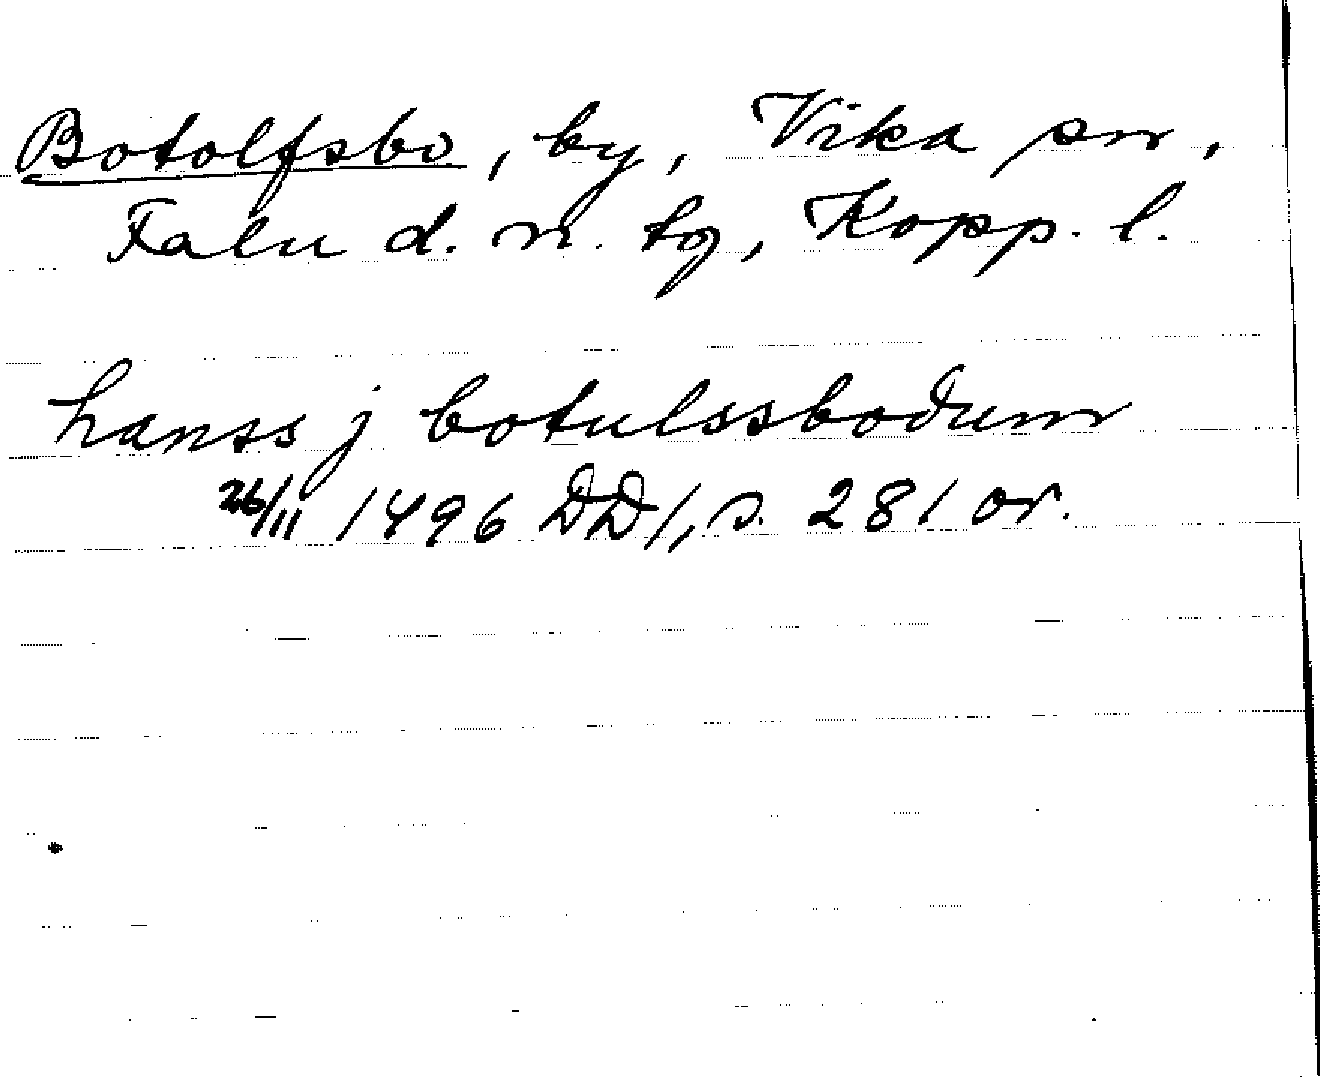 Botolfsbo, by, Vika sn,
Falu d. n. tg, Kopp. l.
hanss j botulssbodum
26/11 1496 DD 1, s. 281 or.